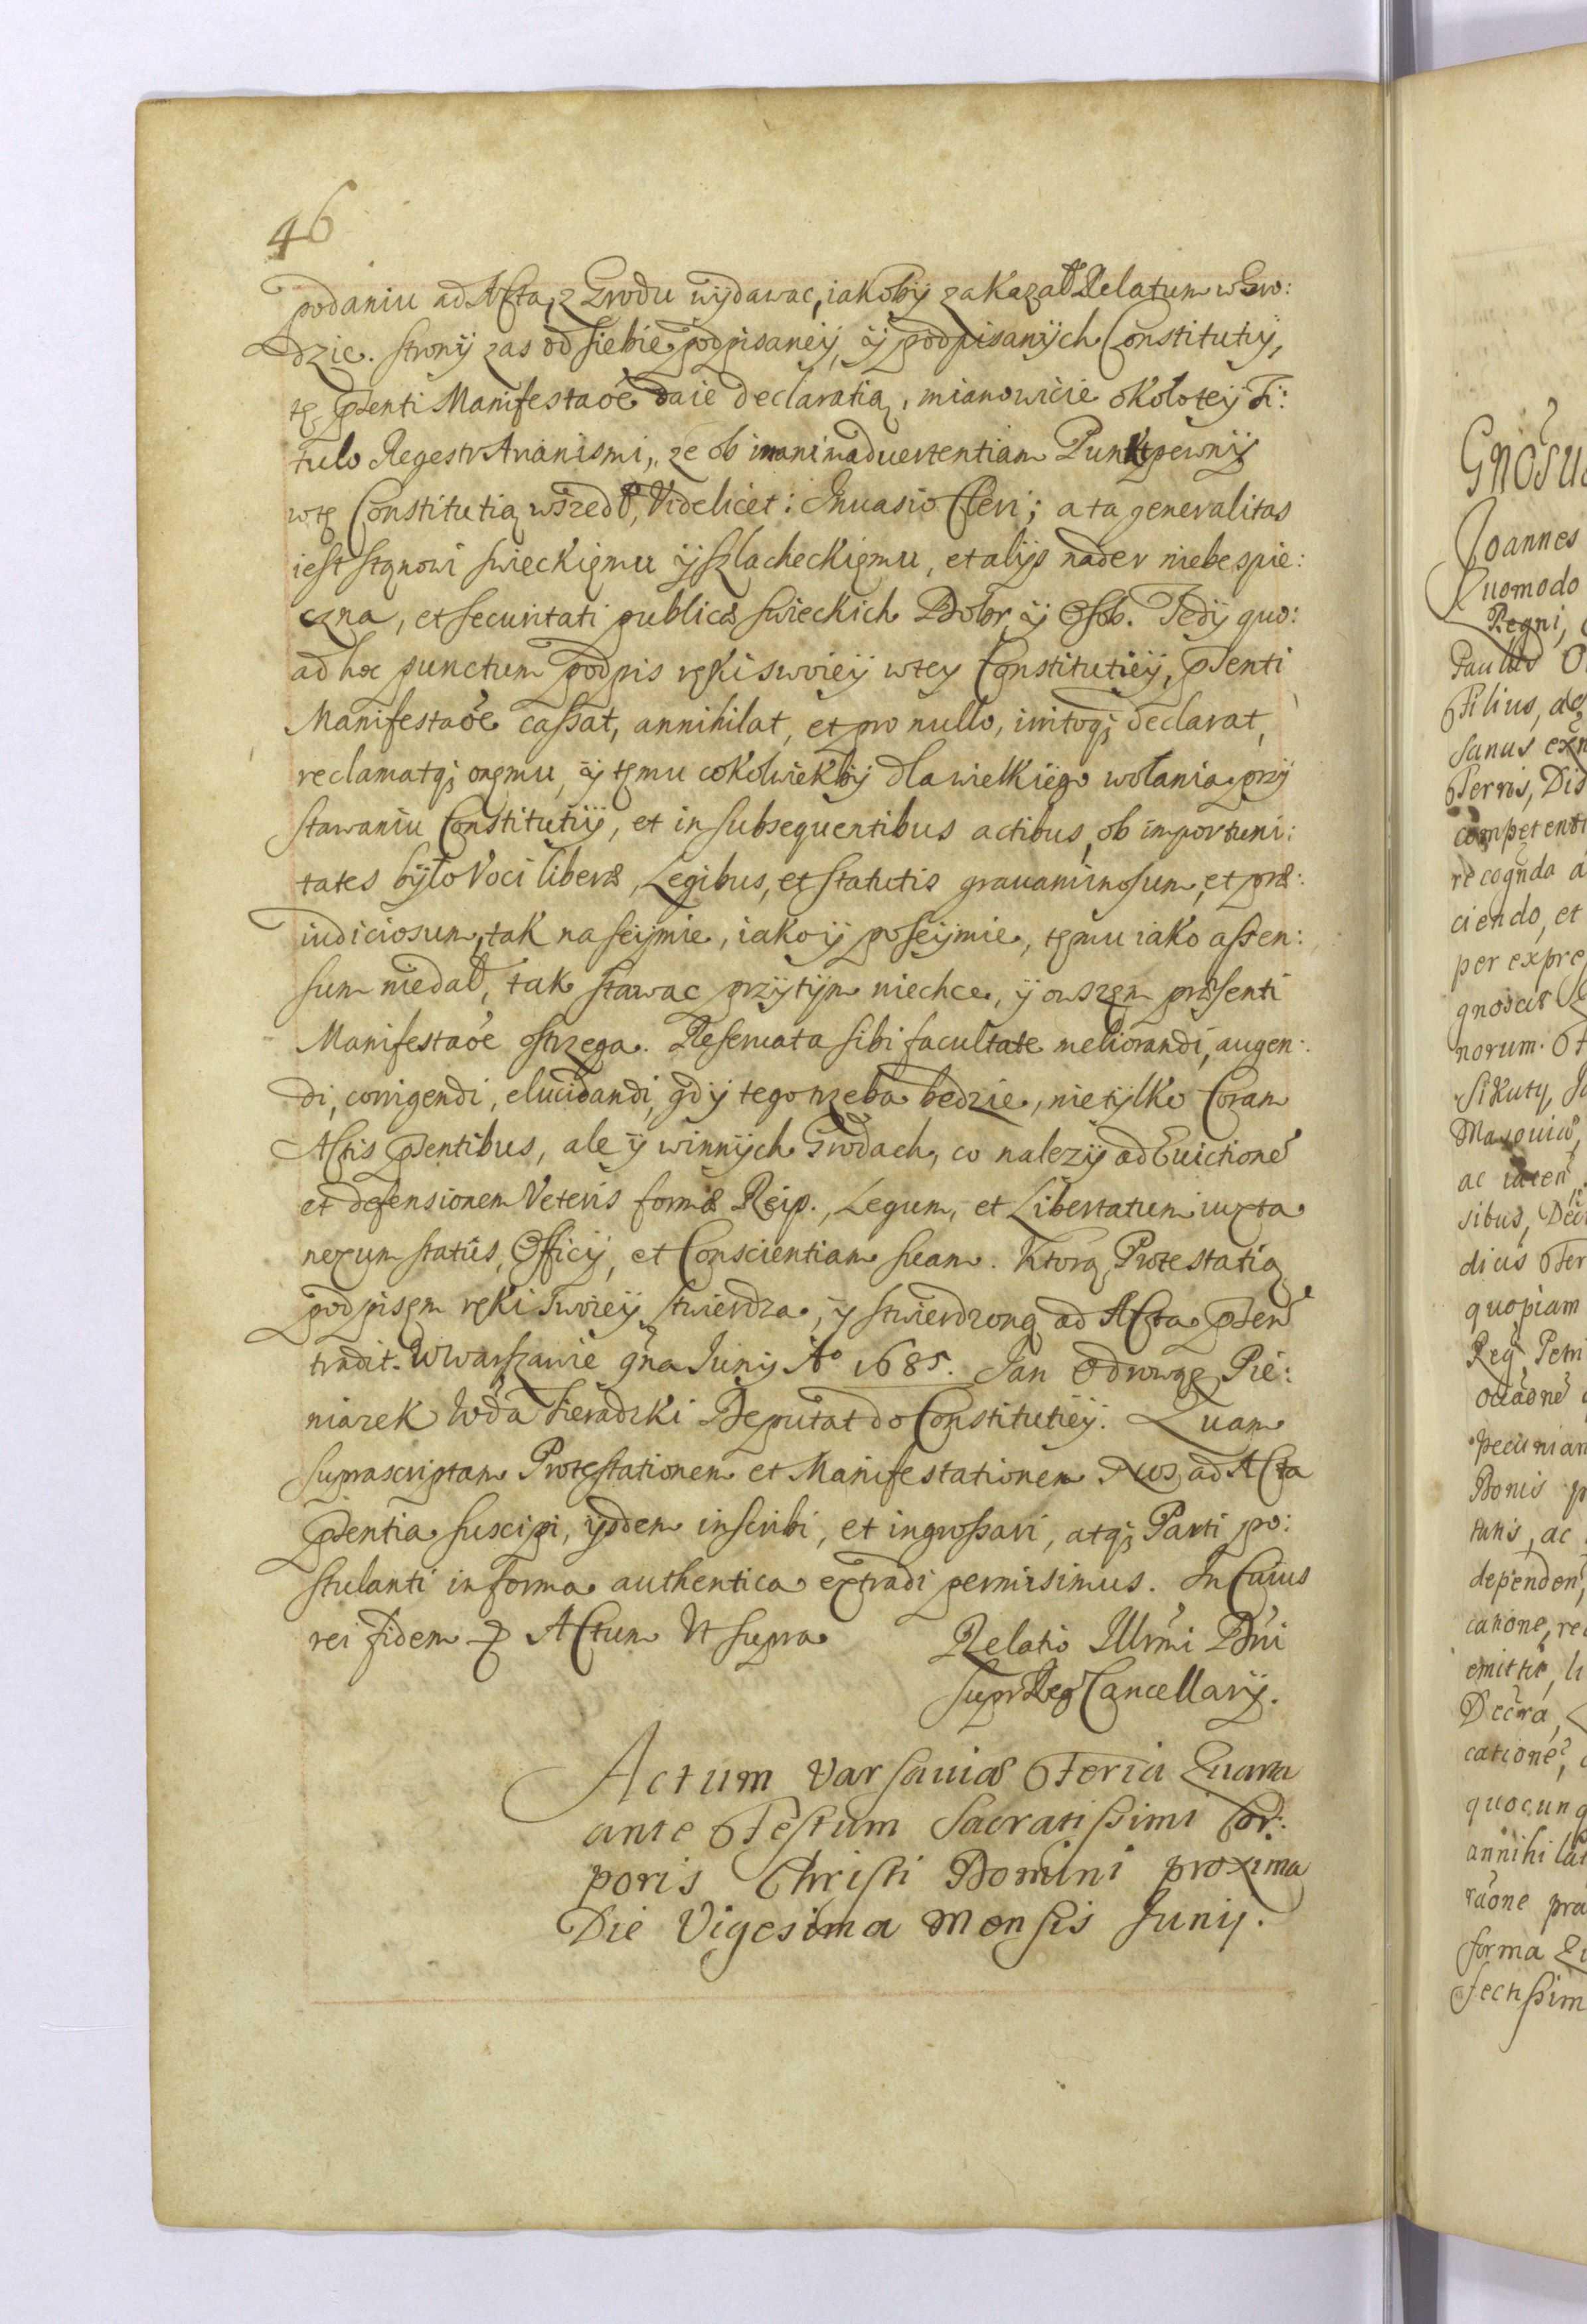 46
podaniu ad Acta, z Grodu wÿdawac, iakobÿ zakazał Relatum w Gro:
dzie. stronÿ zas od siebie podpisaneÿ, ÿ podpisanÿch Constitutiÿ,
tę psenti Manifestaoe daie declaratią, mianowicie okołoteÿ Ti:
tulo Regestr Arianismi, ze ob inanimaduertentiam Punkt pewnÿ
w tę Constitutią wszedł, Videlicet: Inuasio Cleri; a ta generalitas
iest stanowi swieckiemu ÿ szlacheckiemu, et alijs nader niebespie:
czna, et securitati publicæ swieckich Dobr, ÿ Osob. Tedÿ quo:
ad hoc punctum podpis ręki swoieÿ wtey Constitutieÿ, psenti
Manifestaoe cassat, annihilat, et pro nullo, irritoq; declarat,
reclamatq; onemu, ÿ temu cokolwiekbÿ dla wielkiego wołania przÿ
stawaniu Constitutiÿ, et in subsequentibus actibus, ob importuni:
tates bÿło Voci liberæ, Legibus, et statutis grauaminosum, et præ:
iudiciosum, tak na seÿmie, iako ÿ po seÿmie, temu iako assen:
sum niedał, tak stawac przÿtÿm niechce, ÿ owszem præsenti
Manifestaoe ostrzega. Reseruata sibi facultate meliorandi, augen:
di, corrigendi, elucidandi, gdÿ tego trzeba bedzie, nie tÿlko Coram
Actis psentibus, ale ÿ winnÿch Grodach, co nalezÿ ad Euictione
et defensionem Veteris formæ Reip., Legum, et Libertatum iuxta
nexum statûs, Officij, et Conscientiam suam. Ktorą Protestatią
podpisem ręki swoieÿ stwierdza, ÿ stwierdzoną ad Acta psen
tradit. W Warszawie 9na Iunij Ao 1685. Jan Odrowąz Pie:
niazek Wda Sieradzki Deputat do Constitutieÿ. Quam
suprascriptam Protestationem et Manifestationem Nos ad Acta
psentia suscipi, ijsdem inscribi, et ingrossari, atq; Parti po:
stulanti in forma authentica extradi permisimus. In Cuius
rei fidem Actum Vt supra Relatio Illrmi Dni
Supr Reg Cancellarij.
Actum Varsauiæ Feria Quarta
ante Festum Sacratissimi Cor:
poris Christi Domini proxima
Die Vigesima Mensis Junij.
Joannes
Quomodo
Regni,
Filius, de
competent
per expre
norum.
quopiam
Bonis
dependen
annihilat
forma